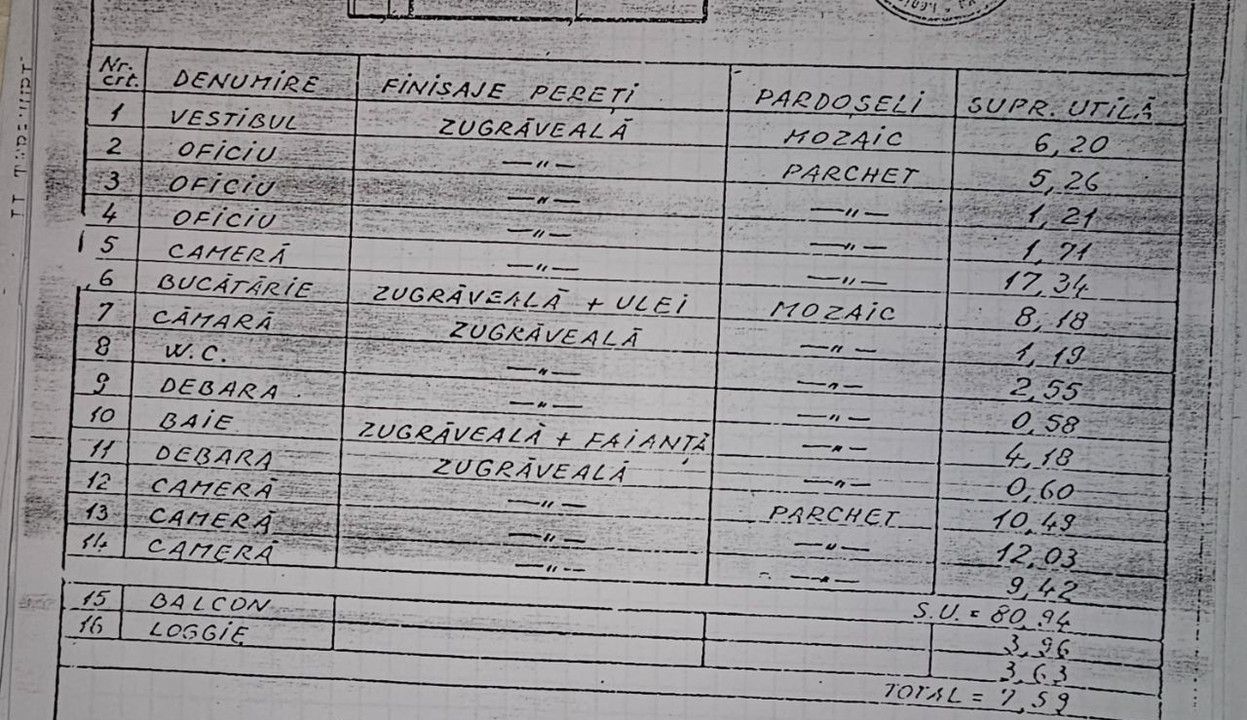 Nr. crt. DENUMIRE FINISAJE PEREȚI PARDOSELI SUPR. UTILĂ
1 VESTIBUL ZUGRĂVEALĂ MOZAIC 6,20
2 OFICIU —〃— PARCHET 5,26
3 OFICIU —〃— —〃— 1,21
4 OFICIU —〃— —〃— 1,71
5 CAMERĂ —〃— —〃— 17,34
6 BUCĂTĂRIE ZUGRĂVEALĂ + ULEI MOZAIC 8,18
7 CĂMARĂ ZUGRĂVEALĂ —〃— 1,19
8 W.C. —〃— —〃— 2,55
9 DEBARA —〃— —〃— 0,58
10 BAIE ZUGRĂVEALĂ + FAIANȚĂ —〃— 4,18
11 DEBARA ZUGRĂVEALĂ —〃— 0,60
12 CAMERĂ —〃— PARCHET 10,49
13 CAMERĂ —〃— —〃— 12,03
14 CAMERĂ —〃— —〃— 9,42
S.U. = 80,94
15 BALCON 3,96
16 LOGGIE 3,63
TOTAL = 7,59